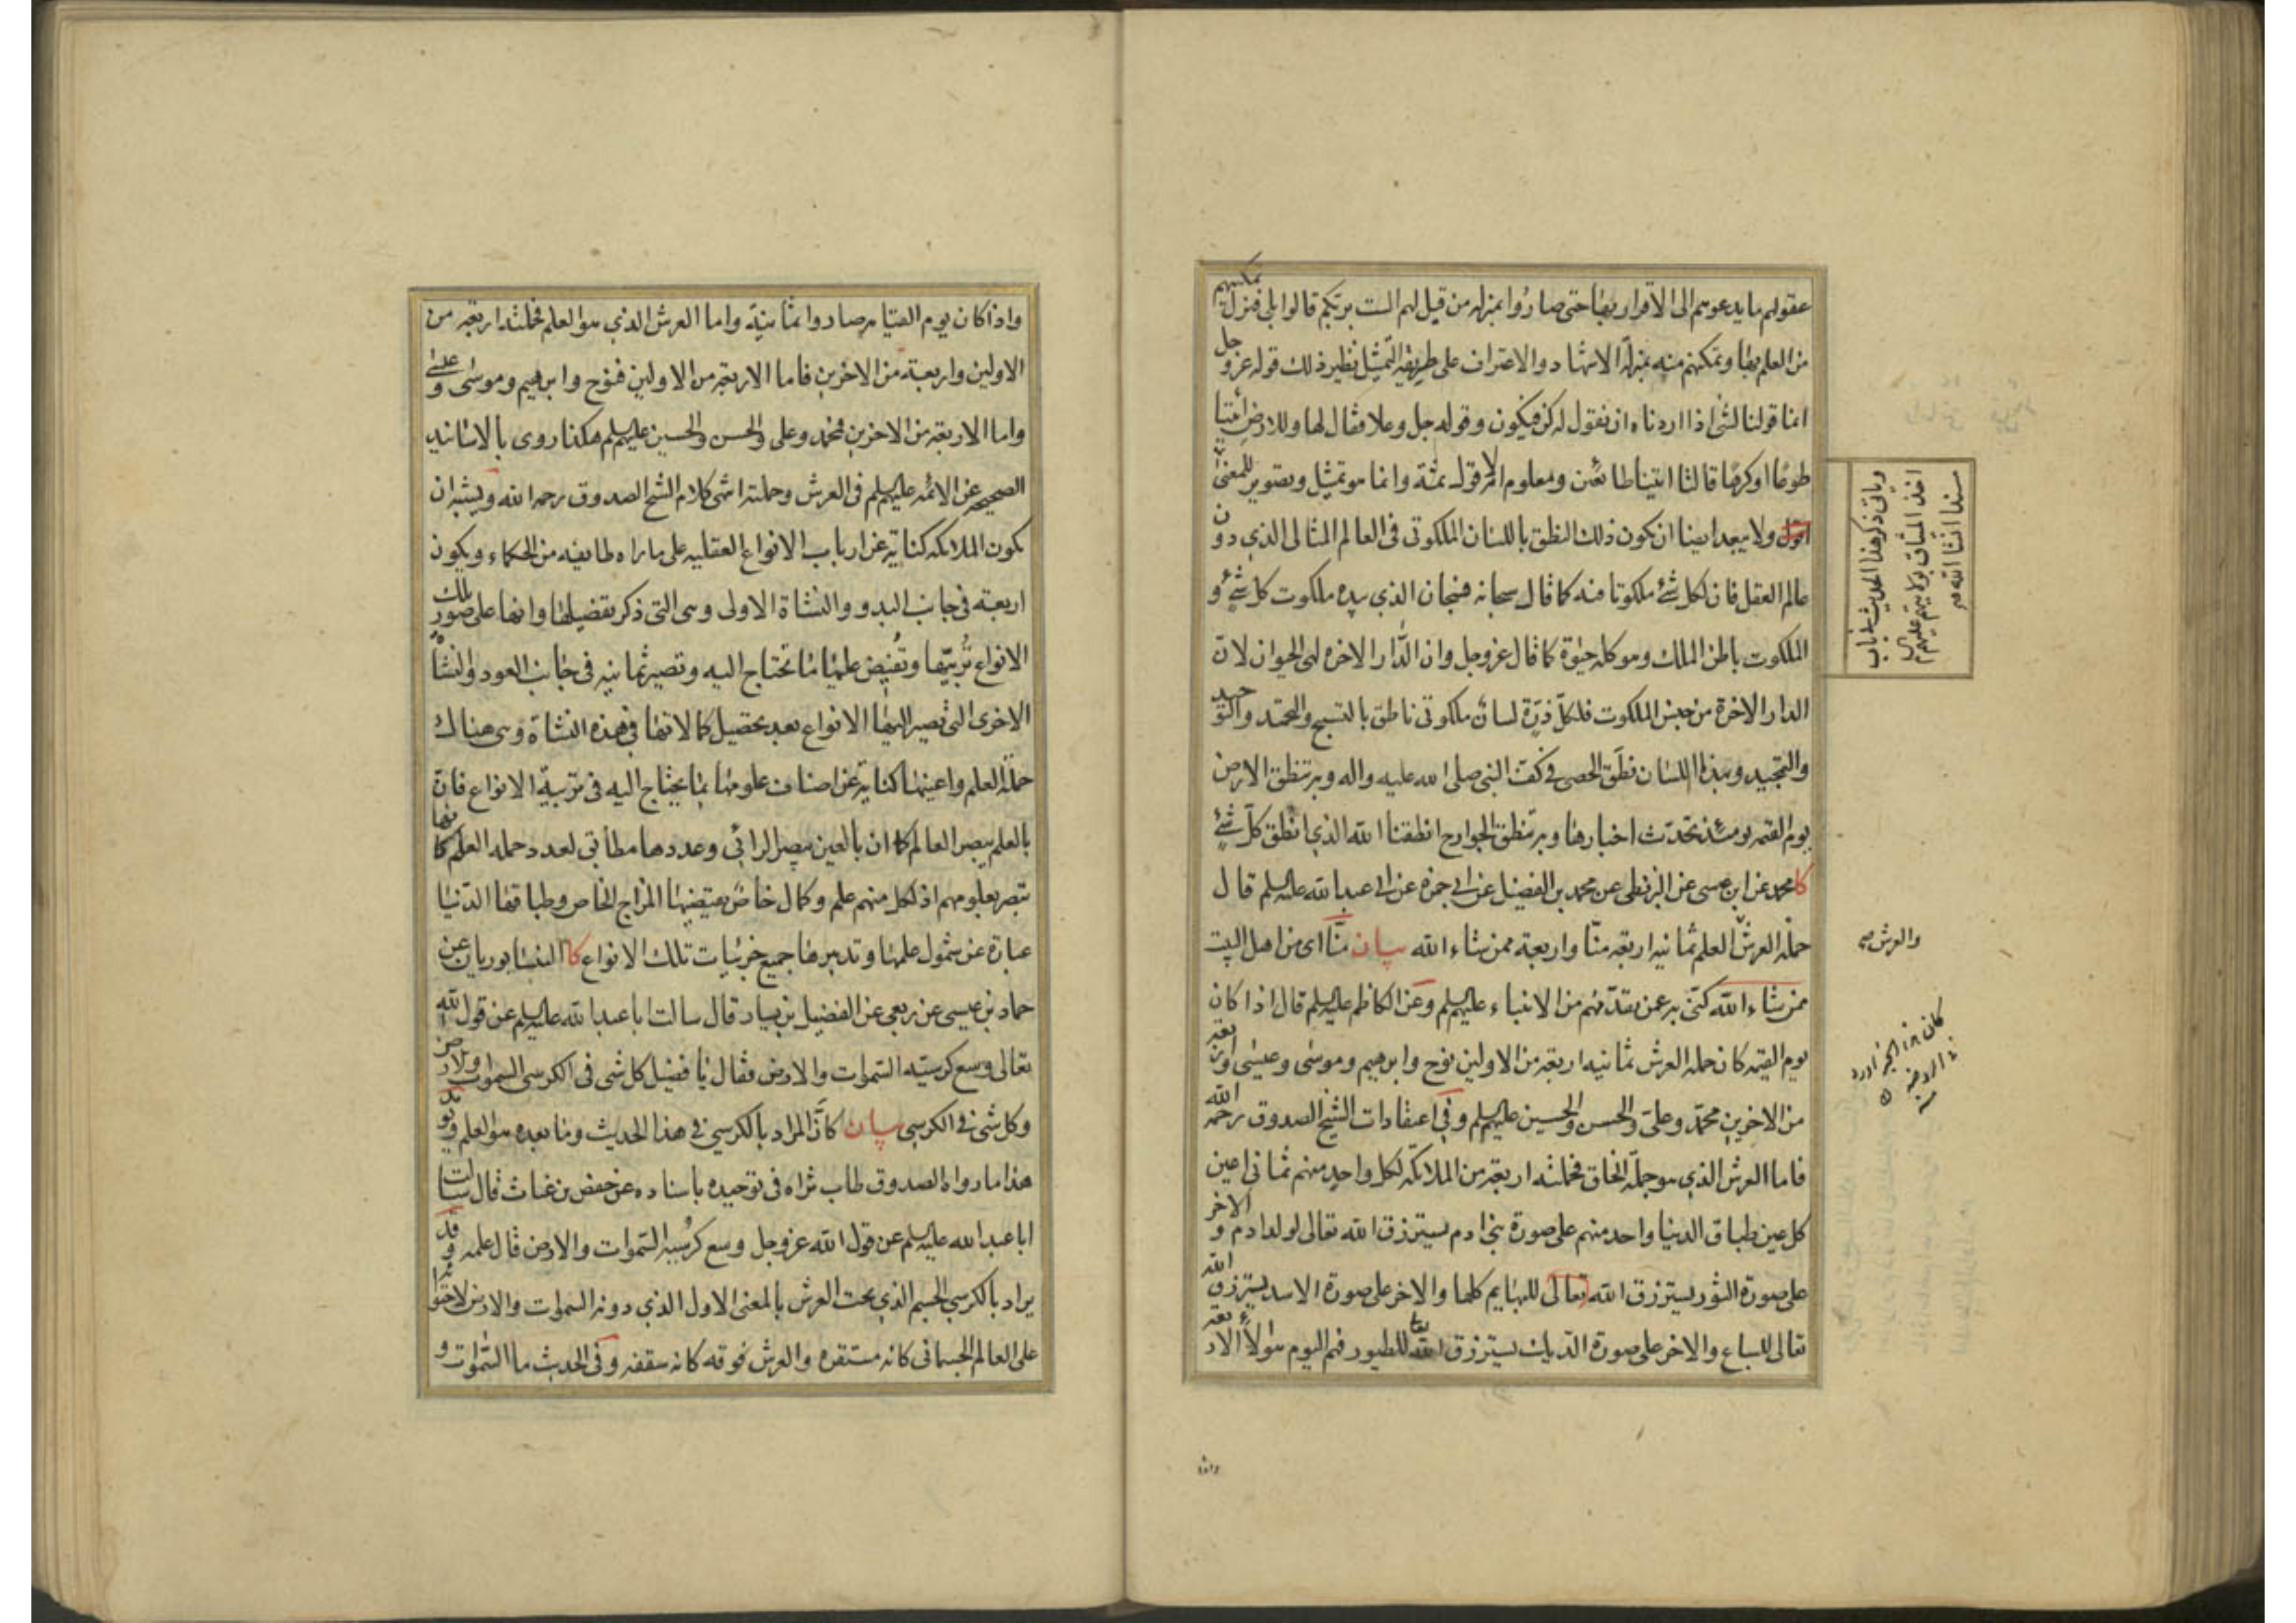 عقولهم ما يدعوهم الى الاقرار بها حتى صاروا بمنزله من قيل لهم الست بربكم قالوا بلى فنزل تمكينهم
من العلم بها وتمكنهم منه بمنزلة الاشهاد والاعتراف على طريقة التمثيل نظير ذلك قوله عز و جل
انما قولنا لشئ اذا اردناه ان نقول له كن فيكون وقوله جل وعلا فقال لها وللارض ائتيا
طوعا اوكرها قالتا اتينا طائعين ومعلوم انه لا قول ثمة وانما هو تمثيل وتصوير للمعنى
اقول ولا يبعد ايضا ان يكون ذلك النطق باللسان الملكوتى فى العالم المثالى الذي دون
عالم العقل فان لكل شئ ملكوتا منه كما قال سبحانه فسبحان الذي بيده ملكوت كل شئ و
الملكوت باطن الملك وهو كله حيوة كما قال عز وجل وان الدار الاخره لهى الحيوان لان
الدار الاخرة من جنس الملكوت فلكل ذرة لسان ملكوتى ناطق بالتسبيح والتحميد والتوحيد
والتمجيد وبهذا اللسان نطق الحصى فى كف النبى صلى الله عليه واله وبه تنطق الارض
يوم القيمه يومئذ تحدث اخبارها وبه تنطق الجوارح انطقنا الله الذي انطق كل شئ
كا محمد عن ابن عيسى عن البزنطى عن محمد بن الفضيل عن ابى حمزه عن ابى عبدالله عليه السلم قال
حملة العرش العلم ثمانيه اربعة منا واربعة ممن شاء الله بيان منا اى من اهل البيت
ممن شاء الله كنى به عمن تقدمهم من الانبياء عليهم السلم وعن الكاظم عليه السلم قال اذا كان
يوم القيمه كان حملة العرش ثمانيه اربعة من الاولين نوح وابرهيم وموسى وعيسى واربعة
من الاخرين محمد وعلى والحسن والحسين عليهم السلم وفى اعتقادات الشيخ الصدوق رحمه الله
فاما العرش الذي هو جملة الخلق فحملته اربعة من الملائكه لكل واحد منهم ثمانى اعين
كل عين طباق الدنيا واحد منهم على صورة بنى ادم يسترزق الله تعالى لولد ادم و الاخر
على صورة الثور يسترزق الله تعالى للبهايم كلها والاخر على صورة الاسد يسترزق الله
تعالى للسباع والاخر على صورة الديك يسترزق الله تعا للطيور فهم اليوم هؤلاء الاربعة
وياتى ذكر هذا الحديث فى باب
اخذ الميثاق بولايتهم عليهم السلم
مسندا انشا الله
والعرش
واذا كان يوم القيامه صاروا ثمانية واما العرش الذي هو العلم فحملته اربعة من
الاولين واربعة من الاخرين فاما الاربعة من الاولين فنوح وابرهيم وموسى و عيسى
واما الاربعة من الاخرين فمحمد وعلى والحسن والحسين عليهم السلم هكذا روى بالاسانيد
الصحيحه عن الائمه عليهم السلم فى العرش وحملته انتهى كلام الشيخ الصدوق رحمه الله ويشبه ان
يكون الملائكه كناية عن ارباب الانواع العقليه على ما راه طايفه من الحكماء ويكون
اربعة فى جانب البدو والنشاة الاولى وهى التى ذكر تفصيلها وانها على صور تلك
الانواع تربيها وتفيض عليها ما تحتاج اليه وتصير ثمانيه فى جانب العود والنشاة
الاخرى التى تصير اليها الانواع بعد تحصيل كمالاتها فى هذه النشاة وهى هناك
حملة العلم واعينها كناية عن اصناف علومها بما يحتاج اليه فى تربية الانواع فان
بالعلم يبصر العالم كما ان بالعين يبصر الرائى وعددها مطابق لعدد حمله العلم كانها
تبصر بعلومهم اذ لكل منهم علم وكمال خاص يقتضيها المزاج الخاص وطباقها الدنيا
عبارة عن شمول علمها وتدبيرها جميع جزئيات تلك الانواع كا النيسابوريان عن
حماد بن عيسى عن ربعى عن الفضيل بن يسار قال سالت ابا عبدالله عليه السلم عن قول الله
تعالى وسع كرسيه السموات والارض فقال يا فضيل كل شئ فى الكرسى السموات والارض
وكل شئ فى الكرسى بيان كان المراد بالكرسي فى هذا الحديث وما بعده هو العلم ويؤيد
هذا ما رواه الصدوق طاب ثراه فى توحيده باسناده عن حفص بن غياث قال سالت
ابا عبدالله عليه السلم عن قول الله عز وجل وسع كرسيه السموات والارض قال علمه وقد
يراد بالكرسي الجسم الذي تحت العرش بالمعنى الاول الذي دونه السموات والارض لاحتوائه
على العالم الجسمانى كانه مستقره والعرش فوقه كانه سقفه وفى الحديث ما السموات و